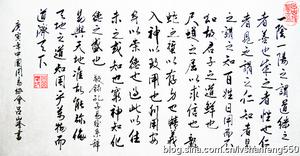 一陰一陽之謂道繼之
者善也成之者性也仁
者見之謂之仁知者見
之謂之知百姓日用而不
知故君子之道鮮也
之屈以求信也龍
蛇之蟄以存身也精義
入神以致用也利用安
身以崇德也過此以往
未之或知也窮神知化
德之盛也
易與天地準故能彌綸
天地之道周乎萬物而
道濟天下
庚寅年中國周易協會呂峯書
blog.sina.com.cn/lvshanfeng550